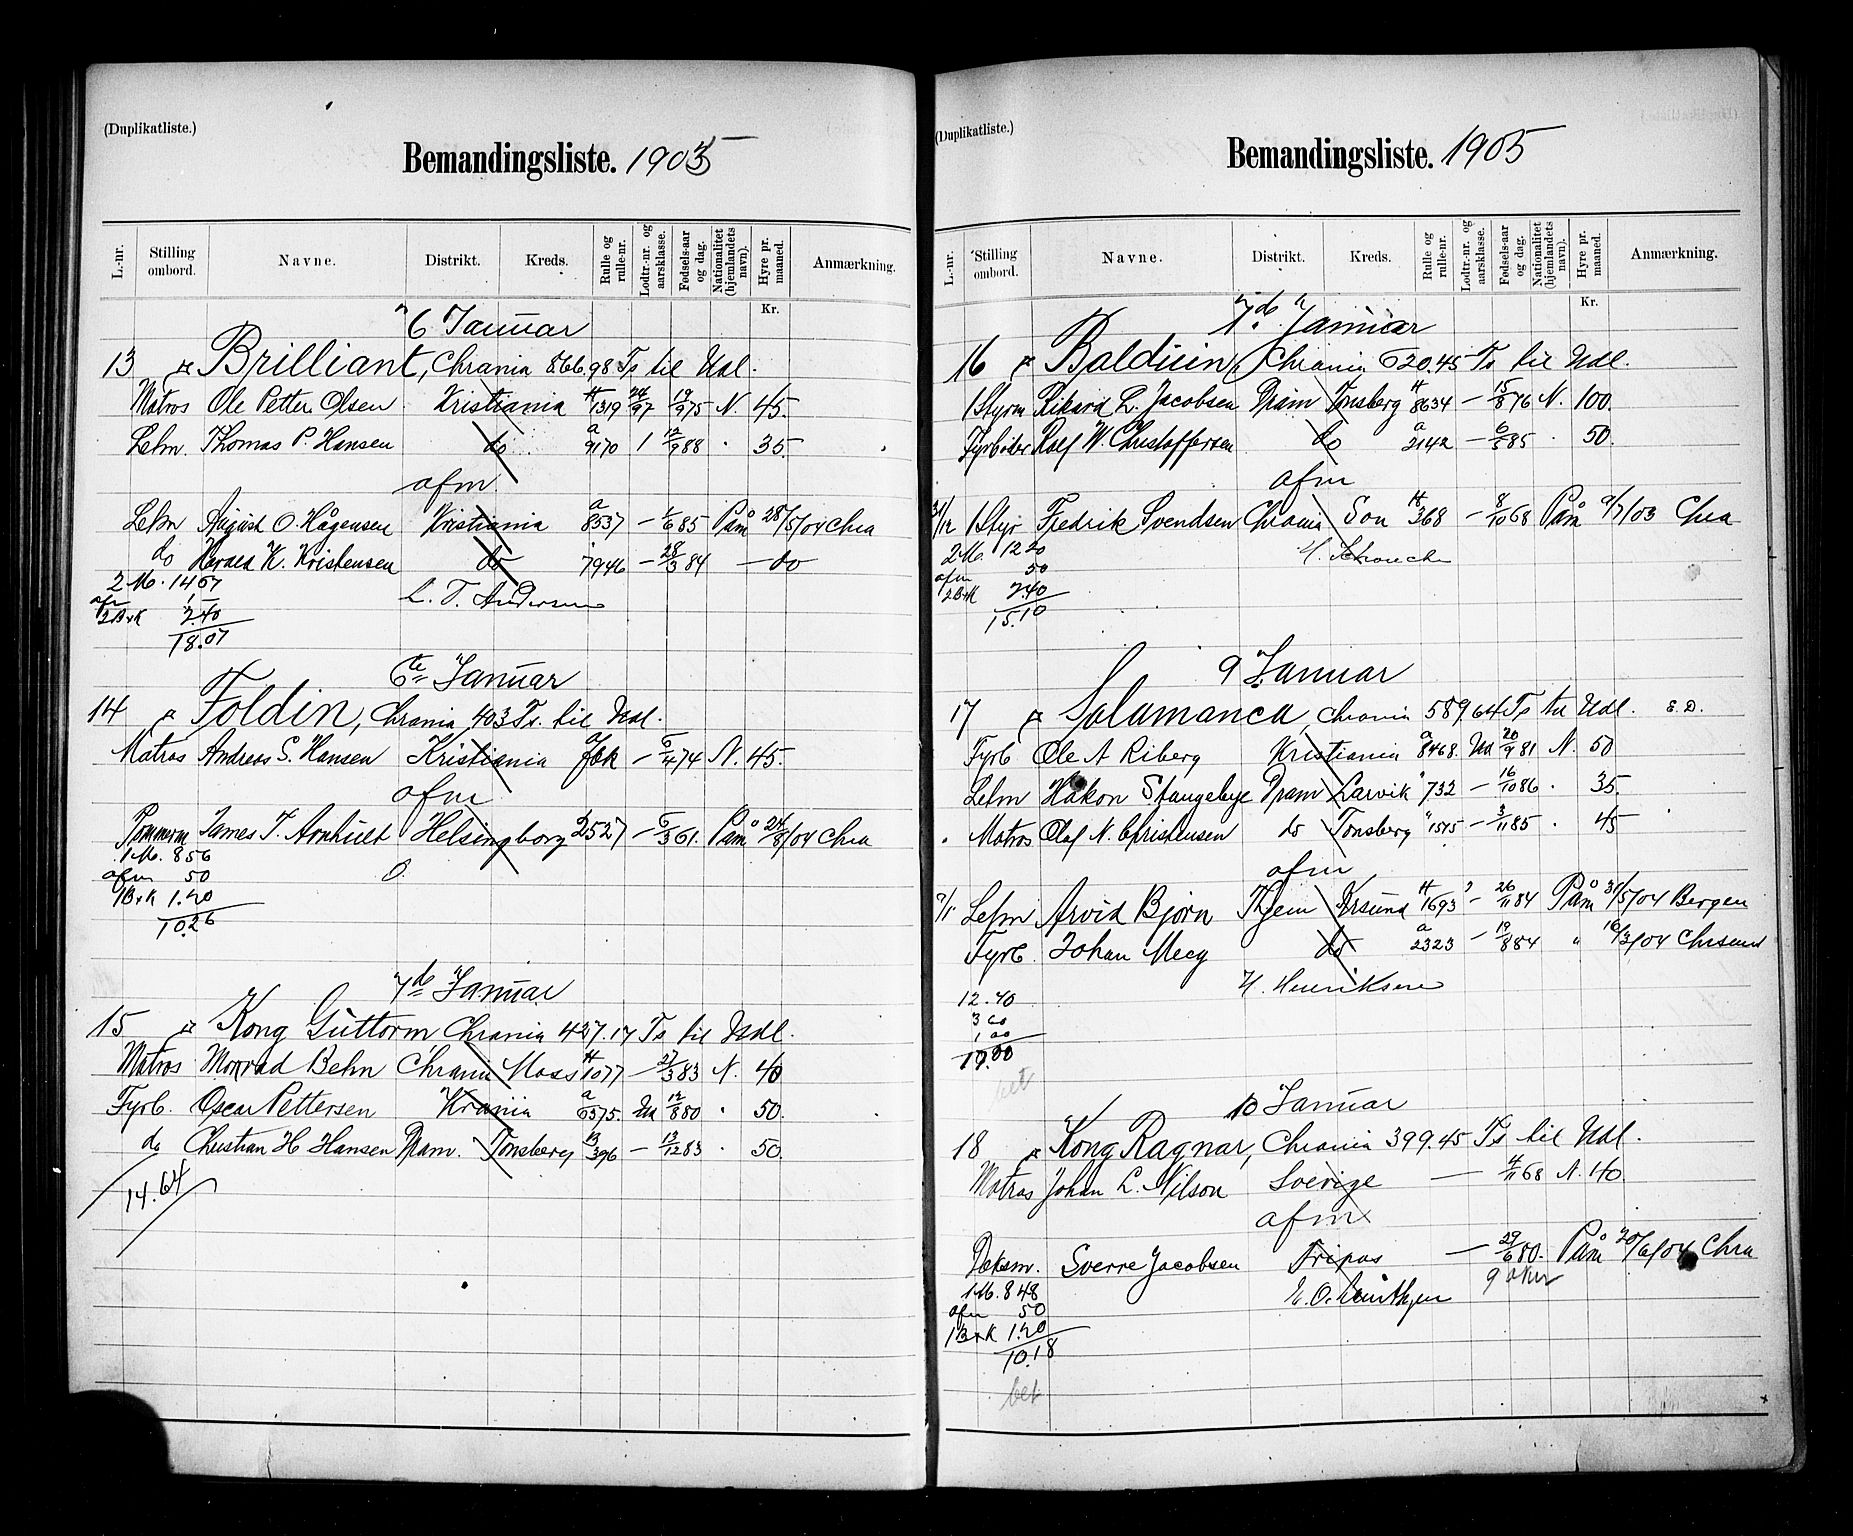 (Duplikatliste.)
Bemandingsliste. 1905
L.-nr. Stilling ombord. Navne. Distrikt. Kreds. Rulle og rulle-nr. Lodtr.-nr. og aarsklasse. Fødsels-aar og dag. Nationalitet (hjemlandets navn). Hyre pr. maaned. Anmærkning.
Kr.
6 Januar
13 Brilliant, Chrania 866.98 Ts til Udl.
Matros Ole Petter Olsen Kristiania H 1319 24/97 19/9 75 N. 45.
Letm. Thomas P. Hansen do a 9170 1 12/9 88 " 35
afm.
Letm August O. Hågensen Kristiania a 8537 – 1/6 85 Påm 28/5/04 Chra
do Harald K. Kristensen do 7946 – 28/3 84 – do
2 M. 14 67
afm 1,–
2 B+K 2.40
18.07
L. T. Andersen
6te Januar
14 Foldin, Chrania 403 Ts. til Udl.
Matros Andreas S. Hansen Kristiania Fbk – 6/4 74 N. 45.
afm
Pommerm James T. Arnhult Helsingborg 2527 – 6/3 61. Påm 24/8/04 Chra
1 M. 8 56
afm 50
1 B+K 1.20
10.26
O.
7de Januar
15 Kong Guttorm, Chrania 427.17 Ts til Udl.
Matros Monrad Behn Chrania Moss H 1077 – 27/3 83 N. 40
Fyrb. Oscar Pettersen Krania a 6375. Ud 12/8 80 " 50.
do Christian H Hansen Dram. Tonsberg 13/396 – 13/12 83 " 50.
14.64
(Duplikatliste.)
Bemandingsliste. 1905
L.-nr. Stilling ombord. Navne. Distrikt. Kreds. Rulle og rulle-nr. Lodtr.-nr. og aarsklasse. Fødsels-aar og dag. Nationalitet (hjemlandets navn). Hyre pr. maaned. Anmærkning.
Kr.
7de Januar
16 Balduin, Chrania 620.45 Ts til Udl.
1 Styrm Rikard L. Jacobsen Dram Tonsberg H 8634 – 15/8 76 N. 100.
Fyrbøder Rolf W. Christoffersen do a 2142 – 6/5 85 " 50.
afm
31/12 1 Styr Fredrik Svendsen Chrania Son H 368 – 8/10 68 Påm 9/7/03 Chra
2 M. 12 20
afm 50
2 B+K 2.40
15.10
9 Januar
17 Salamanca, Chrania 589.64 Ts til Udl. E.D.
Fyrb Ole A Riberg Kristiania a 8468 Ud 20/9 81 N. 50
Letm Håkon Stangebye Dram Larvik " 732 – 16/10 86 " 35.
Matros Olaf N. Christensen do Tonsberg " 1515 – 3/11 85 " 45
afm
9/1 Letm Arvid Bjørn Thjem Krsund H 1693 – 26/11 84 Påm 31/5/04 Bergen
Fyrb Johan Meeg do a 2323 – 19/8 84 " 16/3/04 Chrsund
H. Henriksen
12.40
3 60
1,00
17.00
bet
10 Januar
18 Kong Ragnar, Chrania 399.45 Ts til Udl.
Matros Johan L. Nilson Sverige – 4/11 68 N. 40.
afm
Dæksm. Sverre Jacobsen Fripas – 29/6 80. Påm 20/6/04 Chra
1 M. 8 48
afm 50
1 B+K 1.20
10.18
bet